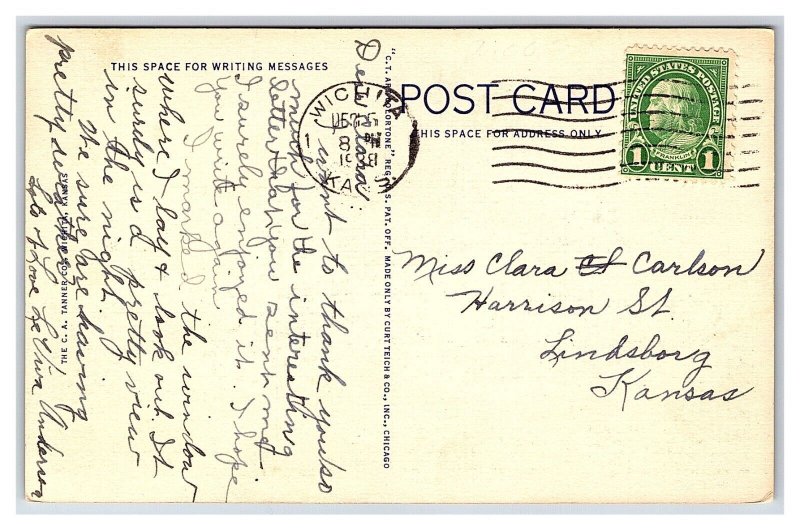 THIS SPACE FOR WRITING MESSAGES
Dear Clara:
I want to thank you so
much for the interesting
letter that you sent me
I surely enjoyed it. I hope
you write again.
I marked the window
where I lay & look out. It
surely is a pretty view
in the night.
We sure are having
pretty days these
Lots of Love
Anderson
THE C. A. TANNER CO., WICHITA, KANSAS
"C.T. ART-COLORTONE" REG. U.S. PAT. OFF. MADE ONLY BY CURT TEICH & CO., INC., CHICAGO
WICHITA
1
8 PM
19
KANS
POST CARD
THIS SPACE FOR ADDRESS ONLY
UNITED STATES POSTAGE
FRANKLIN
1 CENT 1
Miss Clara Carlson
Harrison St.
Lindsborg
Kansas